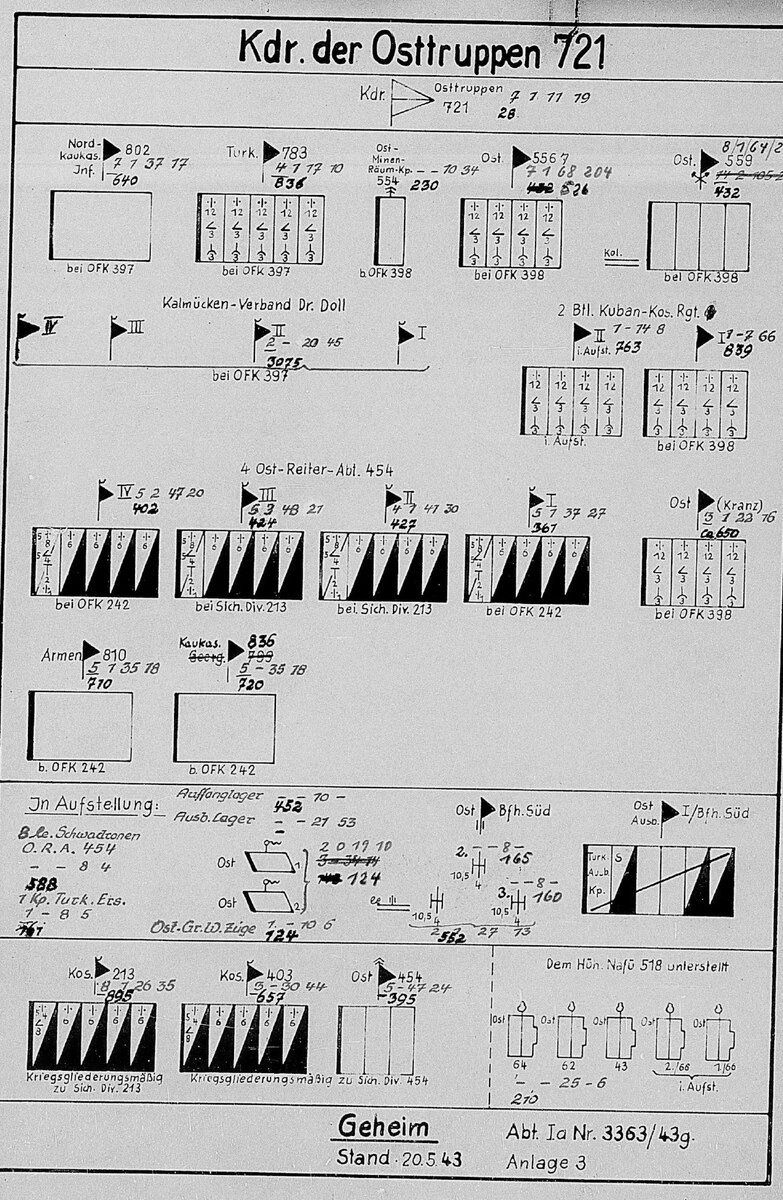 Kdr. der Osttruppen 721
Kdr. Osttruppen 7 1 11 19
721
28
Nord-kaukas. Inf. 802
7 1 37 17
640
bei OFK 397
Turk. 783
4 1 17 10
836
12 12 12 12 12
3 3 3 3 3
bei OFK 397
Ost-Minen-Räum-Kp. 554
- - 10 34
230
b. OFK 398
Ost. 556
7 1 68 204
432 526
12 12 12 12
3 3 3 3
bei OFK 398
8/1/64/2
Ost. 559
432
Kol.
bei OFK 398
Kalmücken-Verband Dr. Doll
IV III II I
2 - 20 45
3075
bei OFK 397
2 Btl. Kuban-Kos. Rgt.
II 1 - 14 8
i. Aufst. 763
12 12 12 12
3 3 3 3
i. Aufst.
I 1 - 7 66
839
12 12 12 12
3 3 3 3
bei OFK 398
4 Ost-Reiter-Abt. 454
IV 5 2 47 20
402
bei OFK 242
III
5 3 48 21
424
bei Sich. Div. 213
II
4 1 41 30
427
bei. Sich. Div. 213
I
5 1 37 27
361
bei OFK 242
Ost (Kranz)
3 1 22 16
ca 650
12 12 12 12
3 3 3 3
bei OFK 398
Armen. 810
5 1 35 18
710
b. OFK 242
Kaukas. 836
Georg. 799
5 - 35 18
720
b. OFK 242
In Aufstellung:
8 le. Schwadronen
O.R.A. 454
- - 8 4
588
1 Kp. Turk. Ers.
1 - 8 5
Auffanglager - - 10 -
452
Ausb. Lager - - 21 53
-
Ost 1
Ost 2
2 0 19 10
124
Ost-Gr.W. Züge 1 - 10 6
124
Ost Bfh. Süd
2. - - 8 -
165
10,5 4
3. - - 8 -
160
10,5 4
le
10,5 4
27 13
552
Ost Ausb. I/Bfh. Süd
Turk. Ausb. Kp.
S
Kos. 213
8 1 26 35
895
Kriegsgliederungsmäßig zu Sich. Div. 213
Kos. 403
3 - 30 44
657
Ost 454
5 - 47 24
395
Kriegsgliederungsmäßig zu Sich. Div. 454
Dem Hön. Nafü 518 unterstellt
Ost Ost Ost Ost Ost
64 62 43 2./66 1/66
i. Aufst.
- - 25 - 6
210
Geheim
Stand 20.5.43
Abt. Ia Nr. 3363/43g.
Anlage 3